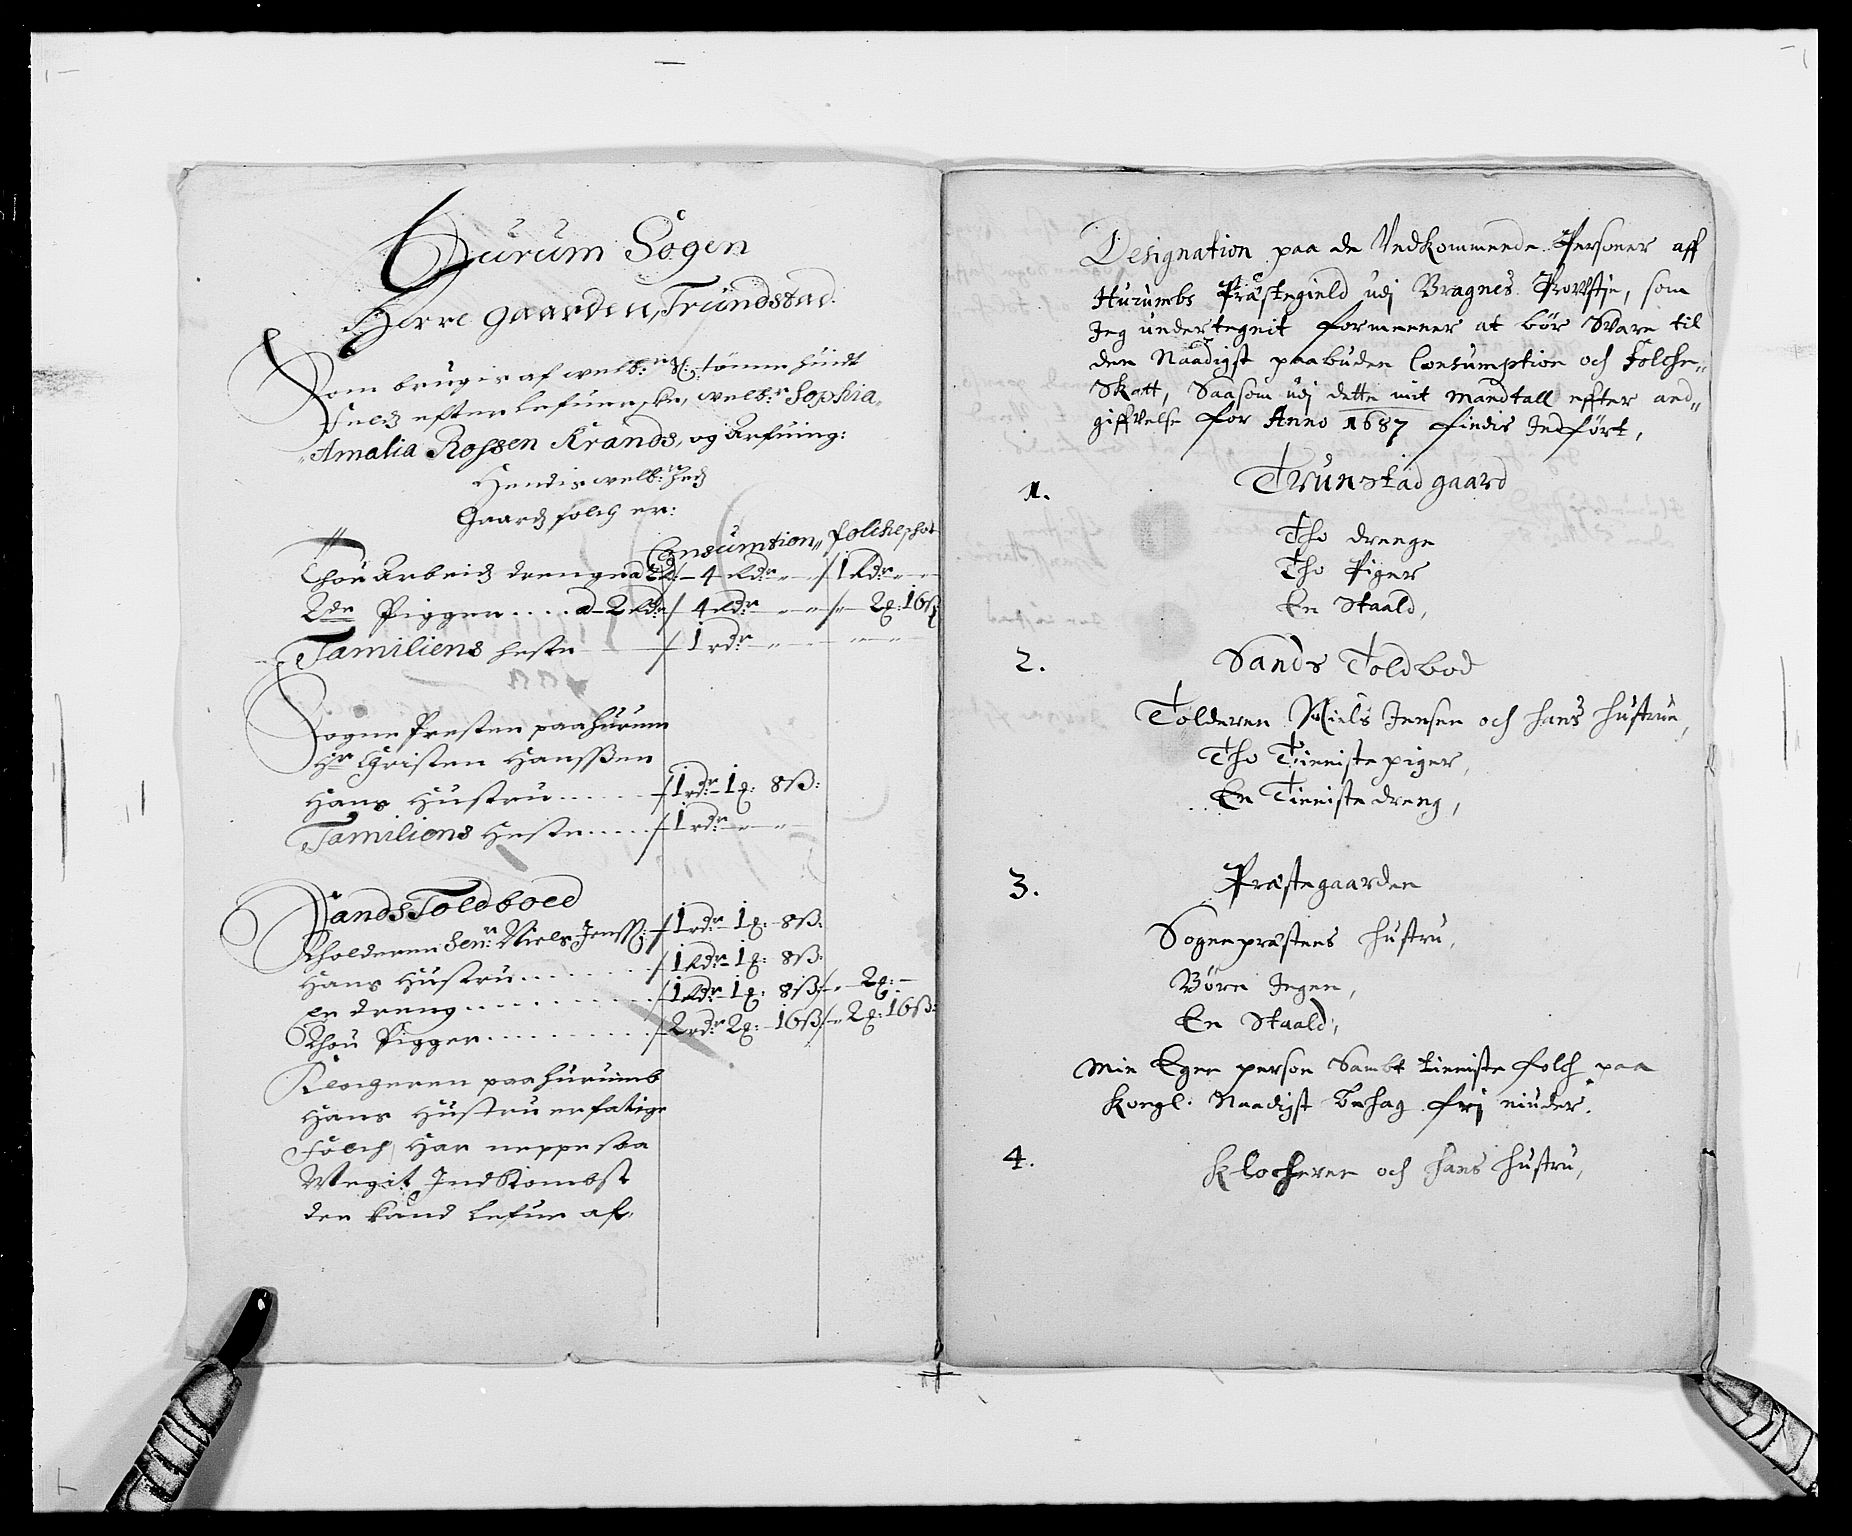 Hurum Sogen
Herre gaarden, Trundstad.
Som brugis af welb:
efterlefuerske, welb:r Sophia
Amalia Rossen Krands, og Arfuing:
Hendis welb:
Gaards folch er:
Consumtion,, folcheschat
Thou Arbeids drenge a 2 Rd: / 4 Rdr / 1 Rdr
2de Pigger .... a 2 Rdr / 4 Rdr / 2 16 ß
Familiens heste / 1 rdr
Sogne Presten paa Hurum
Hr Christen Hansßen
Hans Hustru ..... / 1 rdr 1 8 ß:
Familiens Heste ..... / 1 rdr
Sands Toldboed
Tholderen Sen:r Niels Jenss: / 1 rdr 1 8 ß:
Hans Hustru ....... / 1 Rdr 1 8 ß:
en dreng ......... / 1 Rdr 1 8 ß: / 2
Thou Pigger ........ / 2 rdr 2 16 ß / 2 16 ß:
Klockeren paa Hurumb
Hans Hustru er fatige
Folch, Har neppe saa
Meget Indkombst
der kand lefue af.
Designation paa de Vedkommende Personer aff
Hurumbs Præstegield udj Bragnes Provstje, som
Jeg undertegnit formeener at bör Svare til
den Naadigst paabuden Consumption och Folche,,
Skatt, Saasom udj dette mit Mandtall effter and,,
giffvelse for Anno 1687 findis Indført,
1. Trunstad gaard
Tho drenge
Tho Piger
En Staald,
2. Sands Toldbod
Tolderen Niels Jensen och hans hustrue,
Tho Tieniste piger,
En Tieniste dreng,
3. Præstegaarden
Sognepræstens hustru,
Börn Ingen,
En Staald,
Min Egen person Sambt tieniste folch paa
Kongl. Naadigst behag frj niuder.
4. Klocheren och hans hustru,